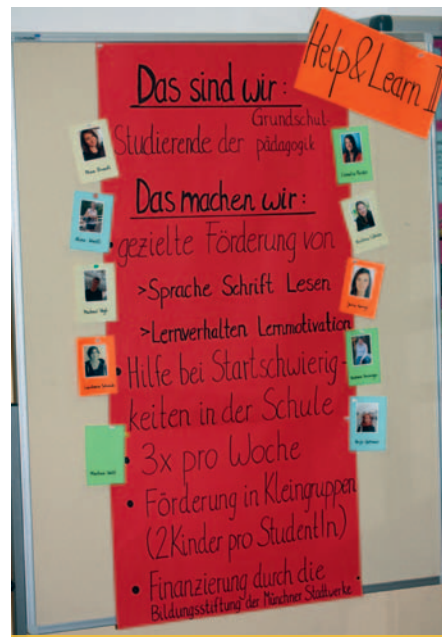 Help & Learn II
Das sind wir:
Studierende der Grundschul-
pädagogik
Das machen wir:
• gezielte Förderung von
>Sprache Schrift Lesen
>Lernverhalten Lernmotivation
• Hilfe bei Startschwierig-
keiten in der Schule
• 3x pro Woche
• Förderung in Kleingruppen
(2 Kinder pro StudentIn)
• Finanzierung durch die
Bildungsstiftung der Münchner Stadtwerke